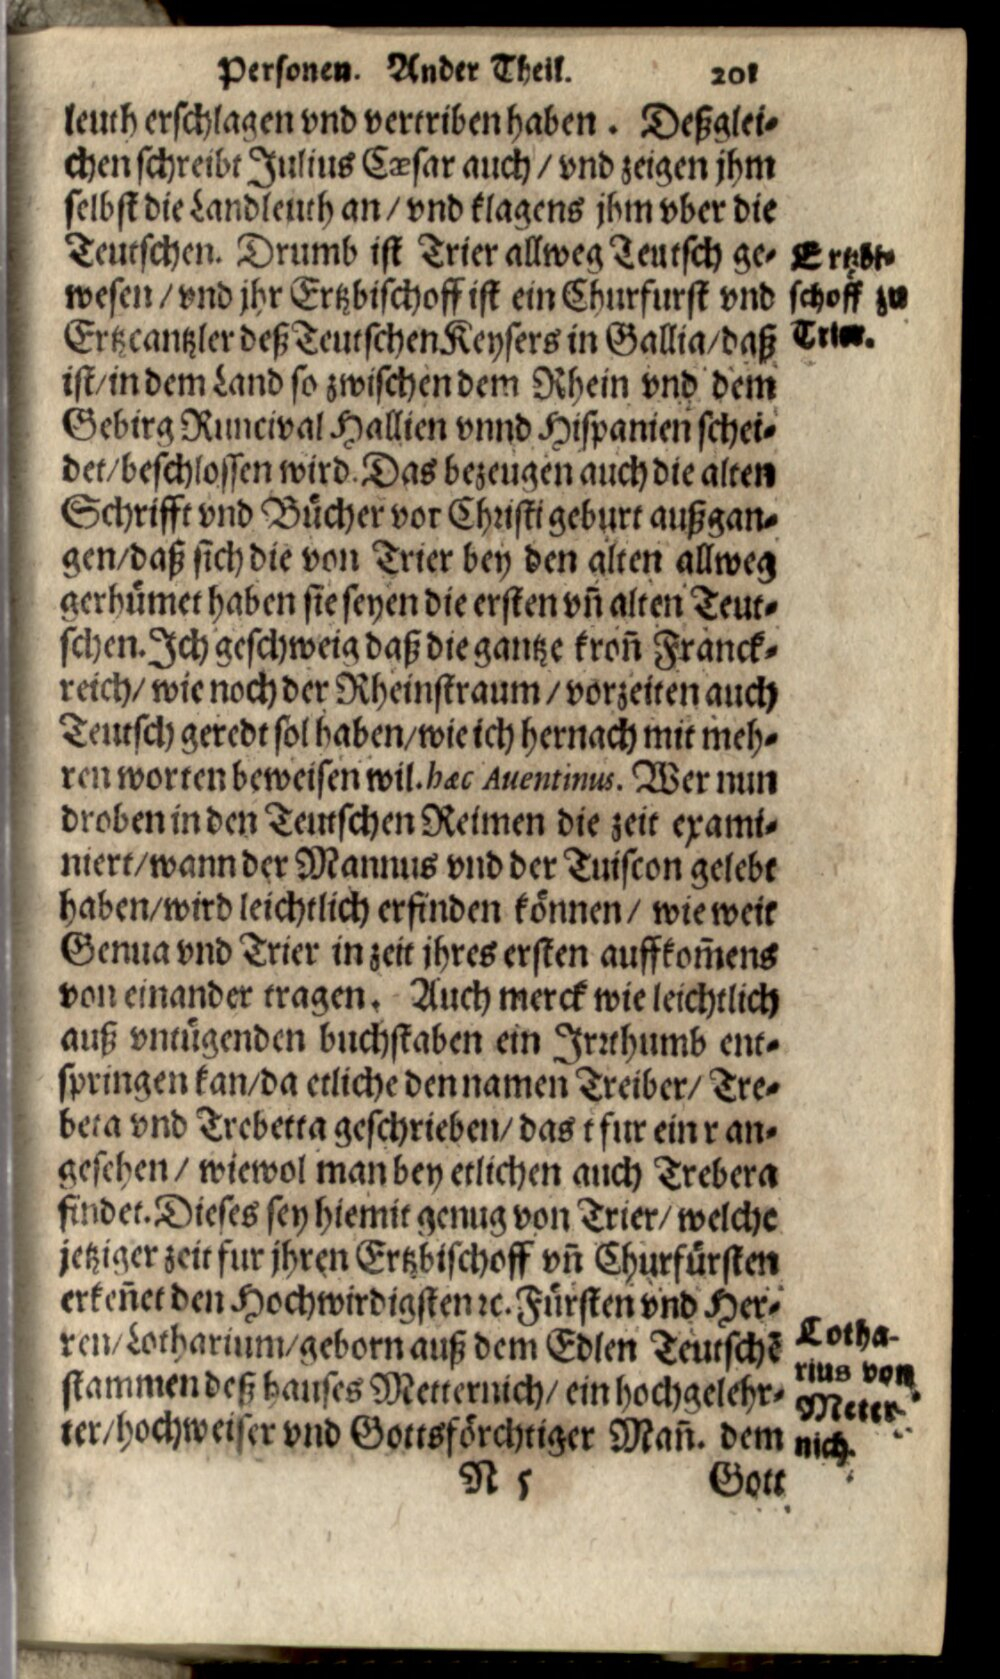 Personen. Ander Theil. 201
leuth erschlagen vnd vertriben haben. Deßglei-
chen schreibt Julius Cæsar auch / vnd zeigen jhm
selbst die Landleuth an / vnd klagens jhm vber die
Teutschen. Drumb ist Trier allweg Teutsch ge-
wesen / vnd jhr Ertzbischoff ist ein Churfurst vnd
Ertzcantzler deß Teutschen Keysers in Gallia / daß
ist / in dem Land so zwischen dem Rhein vnd dem
Gebirg Runcival Hallien vnnd Hispanien schei-
det / beschlossen wird. Das bezeugen auch die alten
Schrifft vnd Bücher vor Christi geburt außgan-
gen / daß sich die von Trier bey den alten allweg
gerhümet haben sie seyen die ersten vn̄ alten Teut-
schen. Ich geschweig daß die gantze kron̄ Franck-
reich / wie noch der Rheinstraum / vorzeiten auch
Teutsch geredt sol haben / wie ich hernach mit meh-
ren worten beweisen wil. hæc Auentinus. Wer nun
droben in den Teutschen Reimen die zeit exami-
niert / wann der Mannus vnd der Tuiscon gelebt
haben / wird leichtlich erfinden können / wie weit
Genua vnd Trier in zeit jhres ersten auffkom̄ens
von einander tragen. Auch merck wie leichtlich
auß vntügenden buchstaben ein Irrthumb ent-
springen kan / da etliche den namen Treiber / Tre-
beta vnd Trebetta geschrieben / das t fur ein r an-
gesehen / wiewol man bey etlichen auch Trebera
findet. Dieses sey hiemit genug von Trier / welche
jetziger zeit fur jhren Ertzbischoff vn̄ Churfürsten
erken̄et den Hochwirdigsten ꝛc. Fürsten vnd Her-
ren / Lotharium / geborn auß dem Edlen Teutschē
stammen deß hauses Metternich / ein hochgelehr-
ter / hochweiser vnd Gottsförchtiger Man̄. dem
N 5 Gott
Ertzbi-
schoff zu
Trier.
Lotha-
rius von
Metter-
nich.